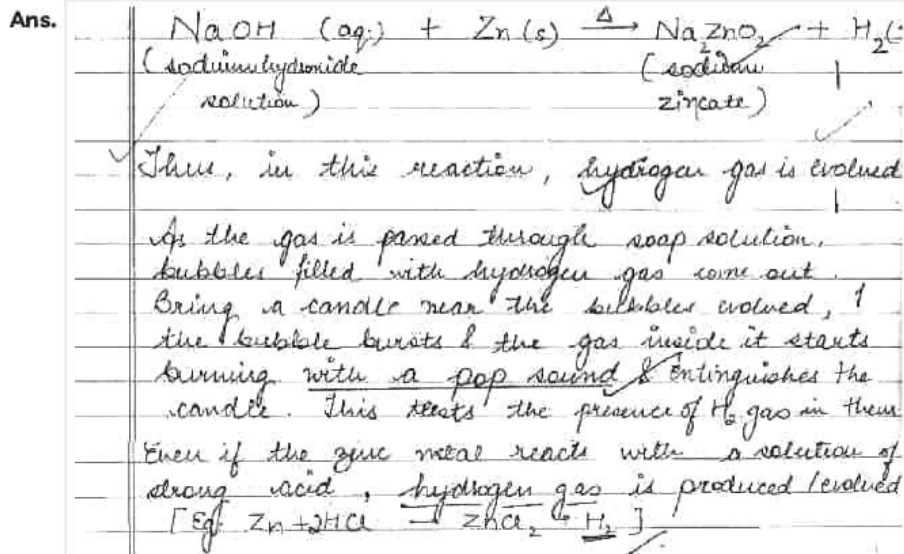 Ans.
NaOH (aq.) + Zn(s) Δ→ Na2ZnO2 + H2(
(sodium hydroxide (sodium
solution) zincate)
Thus, in this reaction, hydrogen gas is evolved
As the gas is passed through soap solution,
bubbles filled with hydrogen gas come out.
Bring a candle near the bubbles evolved, 1
the bubble bursts & the gas inside it starts
burning with a pop sound & entinguishes the
candle. This tests the presence of H2 gas in them
Even if the zinc metal reacts with a solution of
strong acid, hydrogen gas is produced/evolved
[Eg: Zn+2HCl → ZnCl2 + H2]